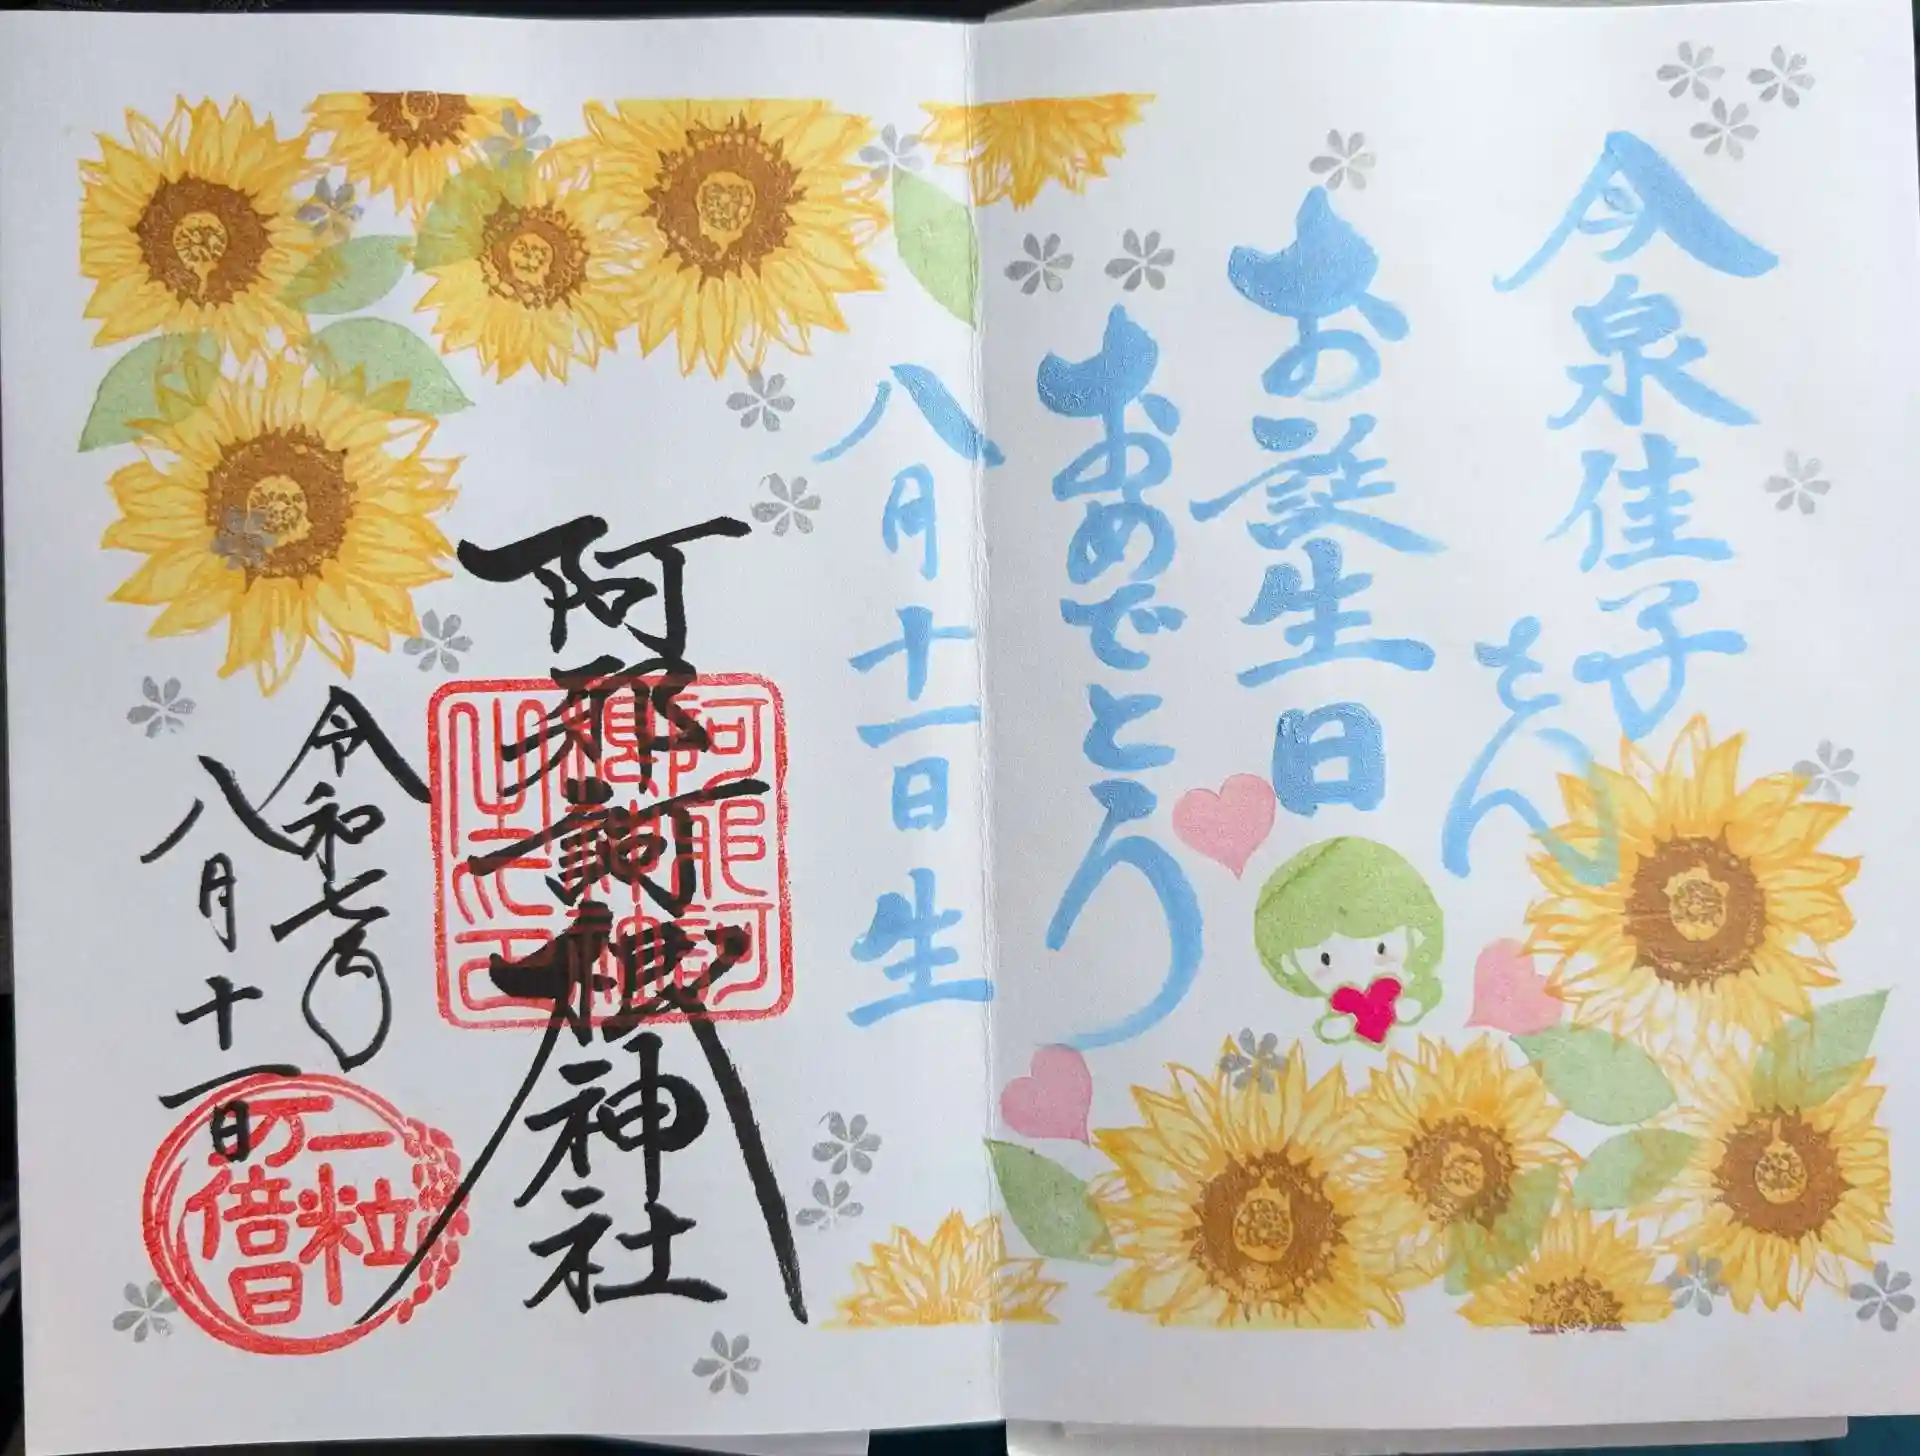 今泉佳子さん
お誕生日
おめでとう
八月十一日生
阿耶訶根神社
阿耶訶
根神社
之印
令和七年
八月十一日
一粒
万倍
日